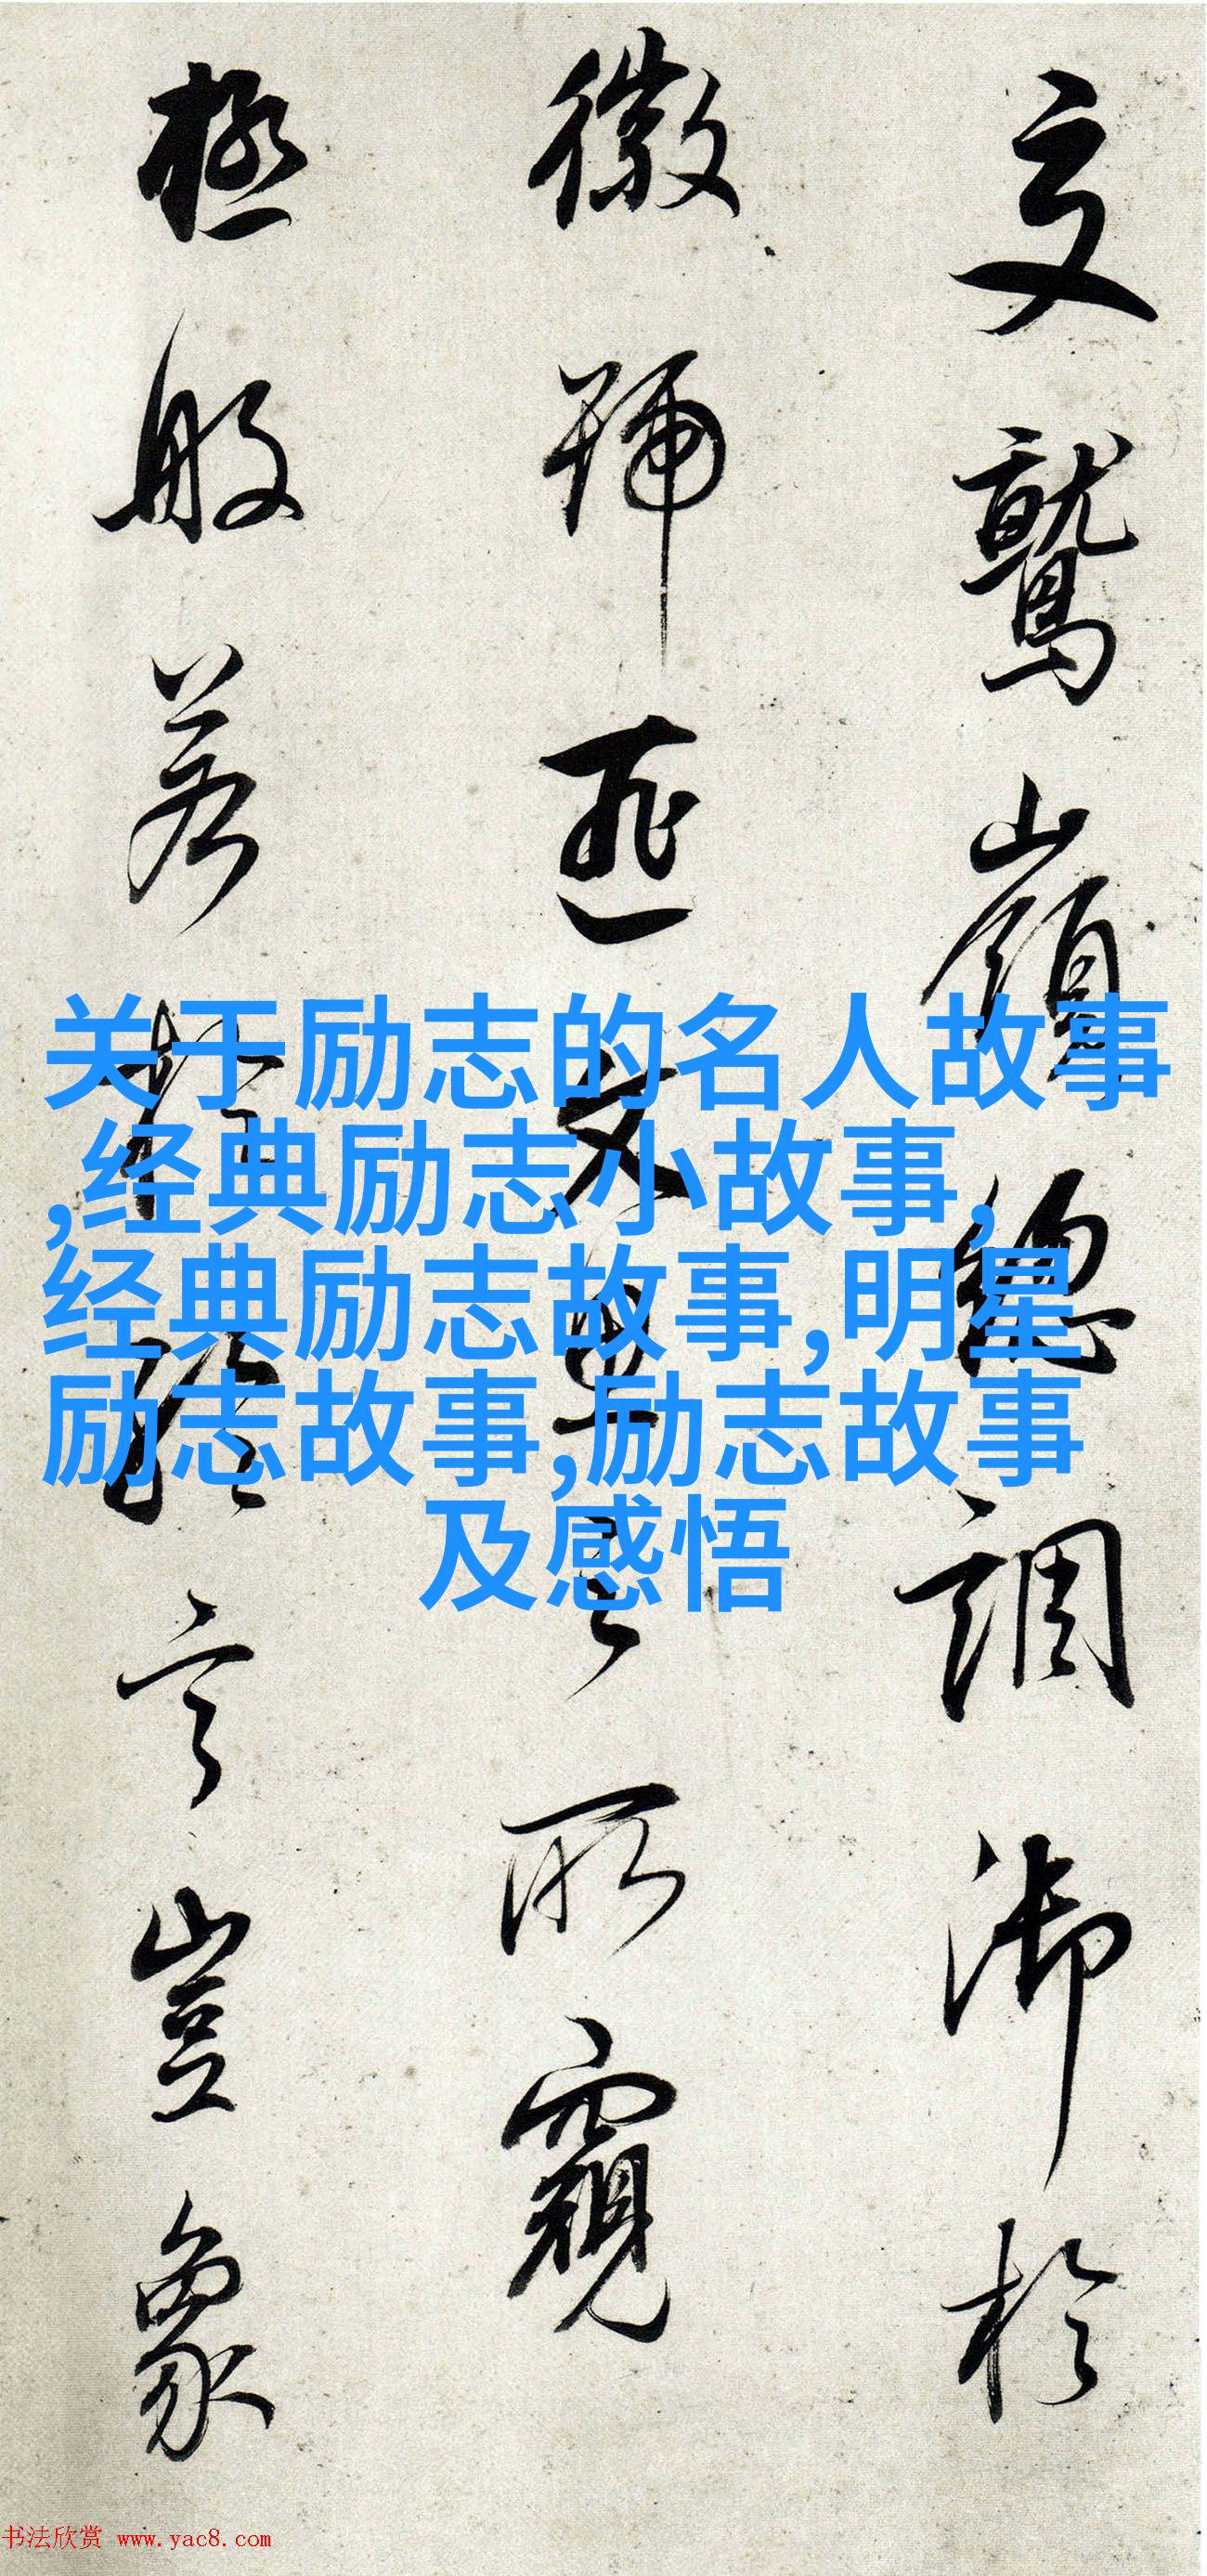 文鷲嶺總調御於
徽號匪文字之所窺
極般若
言豈象
关于励志的名人故事
,经典励志小故事,
经典励志故事,明星
励志故事,励志故事
及感悟
书法欣赏 www.yac8.com